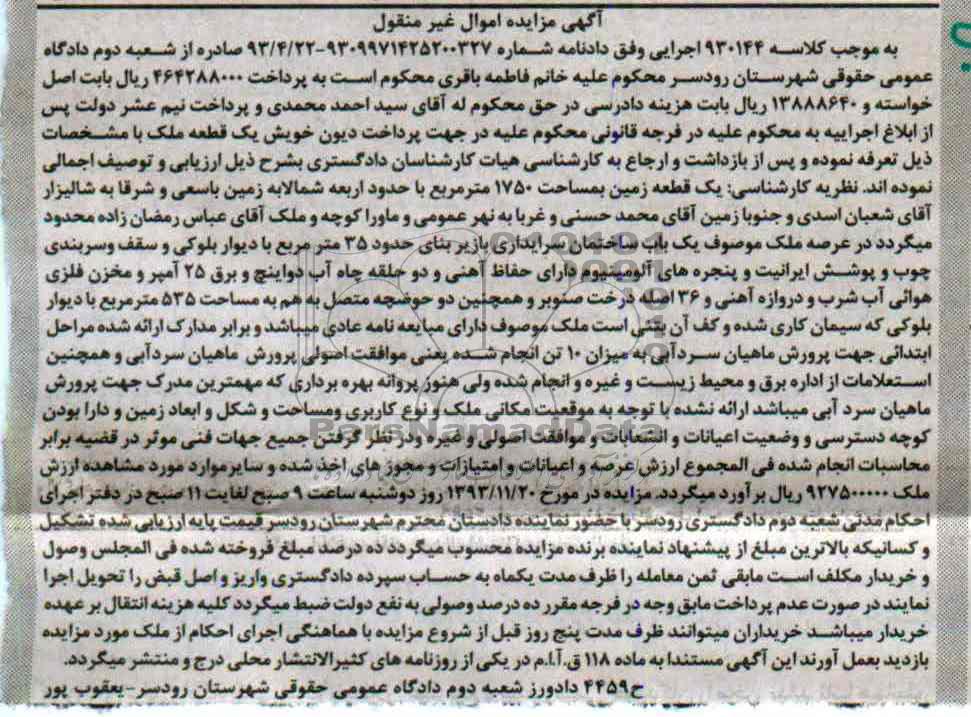 آگهی مزایده اموال غیر منقول
به موجب کلاسه ۹۳۰۱۴۴ اجرایی وفق دادنامه شماره ۹۳۰۹۹۷۱۴۲۵۲۰۰۳۲۷-۹۳/۴/۲۲ صادره از شعبه دوم دادگاه
عمومی حقوقی شهرستان رودسر محکوم علیه خانم فاطمه باقری محکوم است به پرداخت ۴۶۴۲۸۸۰۰۰ ریال بابت اصل
خواسته و ۱۳۸۸۸۶۴۰ ریال بابت هزینه دادرسی در حق محکوم له آقای سید احمد محمدی و پرداخت نیم عشر دولت پس
از ابلاغ اجراییه به محکوم علیه در فرجه قانونی محکوم علیه در جهت پرداخت دیون خویش یک قطعه ملک با مشخصات
ذیل تعرفه نموده و پس از بازداشت و ارجاع به کارشناسی هیات کارشناسان دادگستری بشرح ذیل ارزیابی و توصیف اجمالی
نموده اند. نظریه کارشناسی: یک قطعه زمین بمساحت ۱۷۵۰ مترمربع با حدود اربعه شمالابه زمین باسعی و شرقا به شالیزار
آقای شعبان اسدی و جنوبا زمین آقای محمد حسنی و غربا به نهر عمومی و ماورا کوچه و ملک آقای عباس رمضان زاده محدود
میگردد در عرصه ملک موصوف یک باب ساختمان سرایداری بازیر بنای حدود ۳۵ متر مربع با دیوار بلوکی و سقف وسربندی
چوب و پوشش ایرانیت و پنجره های آلومینیوم دارای حفاظ آهنی و دو حلقه چاه آب دواینچ و برق ۲۵ آمپر و مخزن فلزی
هوائی آب شرب و دروازه آهنی و ۳۶ اصله درخت صنوبر و همچنین دو حوضچه متصل به هم به مساحت ۵۳۵ مترمربع با دیوار
بلوکی که سیمان کاری شده و کف آن بتنی است ملک موصوف دارای مبایعه نامه عادی میباشد و برابر مدارک ارائه شده مراحل
ابتدائی جهت پرورش ماهیان سردآبی به میزان ۱۰ تن انجام شده یعنی موافقت اصولی پرورش ماهیان سردآبی و همچنین
استعلامات از اداره برق و محیط زیست و غیره و انجام شده ولی هنوز پروانه بهره برداری که مهمترین مدرک جهت پرورش
ماهیان سرد آبی میباشد ارائه نشده با توجه به موقعیت مکانی ملک و نوع کاربری ومساحت و شکل و ابعاد زمین و دارا بودن
کوچه دسترسی و وضعیت اعیانات و انشعابات و موافقت اصولی و غیره ودر نظر گرفتن جمیع جهات فنی موثر در قضیه برابر
محاسبات انجام شده فی المجموع ارزش عرصه و اعیانات و امتیازات و مجوز های اخذ شده و سایر موارد مورد مشاهده ارزش
ملک ۹۲۷۵۰۰۰۰۰ ریال برآورد میگردد. مزایده در مورخ ۱۳۹۳/۱۱/۲۰ روز دوشنبه ساعت ۹ صبح لغایت ۱۱ صبح در دفتر اجرای
احکام مدنی شعبه دوم دادگستری رودسر با حضور نماینده دادستان محترم شهرستان رودسر قیمت پایه ارزیابی شده تشکیل
و کسانیکه بالاترین مبلغ از پیشنهاد نماینده برنده مزایده محسوب میگردد ده درصد مبلغ فروخته شده فی المجلس وصول
و خریدار مکلف است مابقی ثمن معامله را ظرف مدت یکماه به حساب سپرده دادگستری واریز و اصل قبض را تحویل اجرا
نمایند در صورت عدم پرداخت مابق وجه در فرجه مقرر ده درصد وصولی به نفع دولت ضبط میگردد کلیه هزینه انتقال بر عهده
خریدار میباشد خریداران میتوانند ظرف مدت پنج روز قبل از شروع مزایده با هماهنگی اجرای احکام از ملک مورد مزایده
بازدید بعمل آورند این آگهی مستندا به ماده ۱۱۸ ق.آ.ا.م در یکی از روزنامه های کثیرالانتشار محلی درج و منتشر میگردد.
ح۴۴۵۹ دادورز شعبه دوم دادگاه عمومی حقوقی شهرستان رودسر-یعقوب پور
ParsNamadData